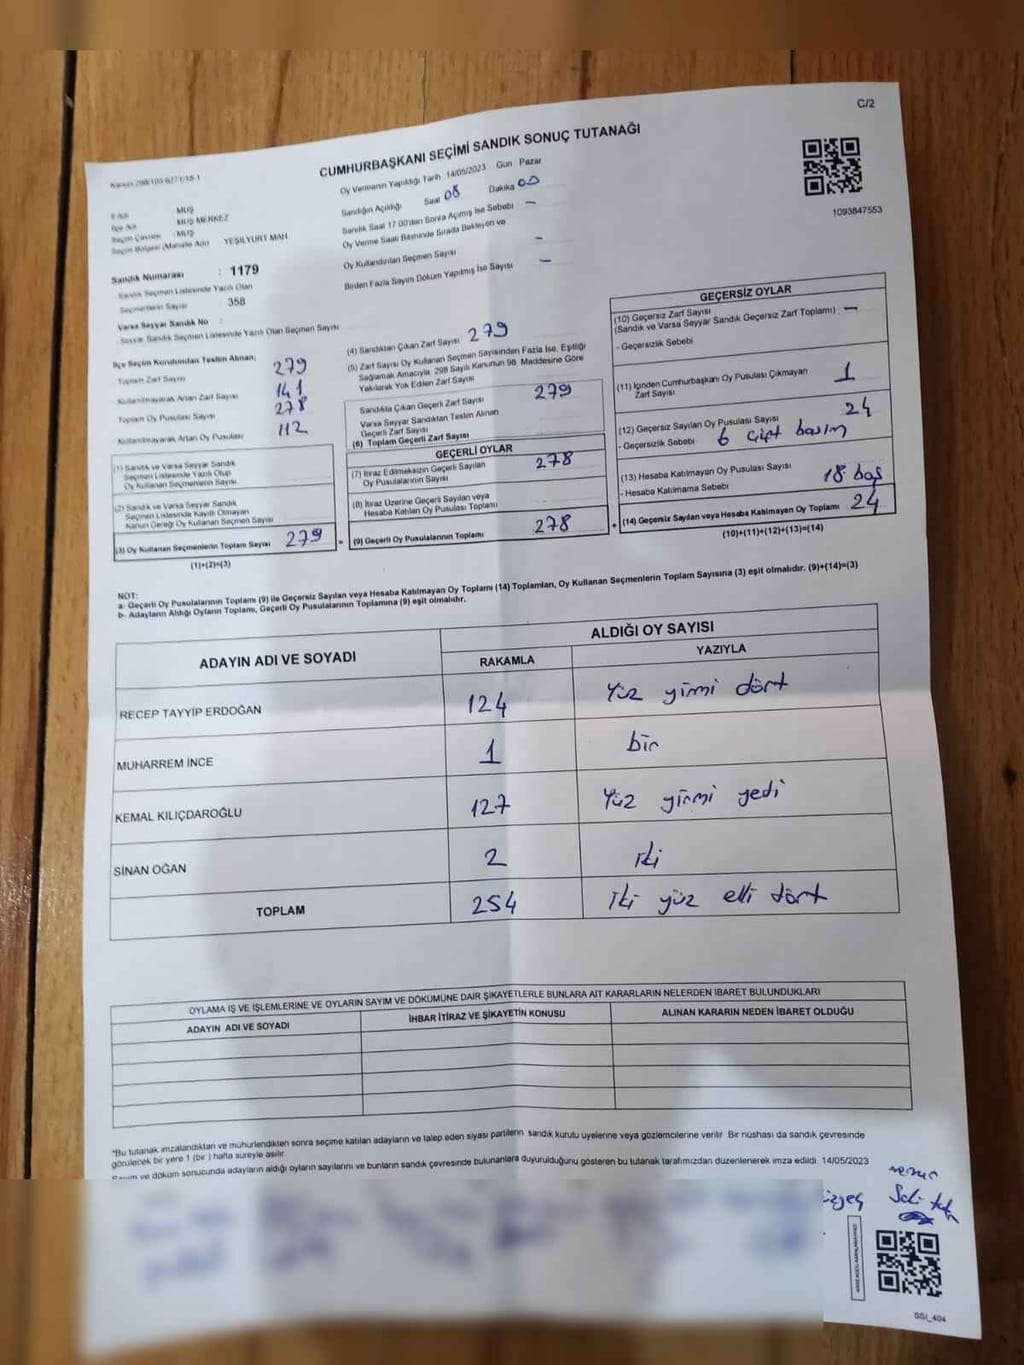 C/2
CUMHURBAŞKANI SEÇİMİ SANDIK SONUÇ TUTANAĞI
Oy Vermenin Yapıldığı Tarih 14/05/2023 Gün Pazar
Sandığın Açıldığı Saat 08 Dakika 00
Sandık Saat 17.00'den Sonra Açılmış İse Sebebi —
Oy Verme Saati Bitiminde Sırada Bekleyen ve
Oy Kullandırılan Seçmen Sayısı —
Birden Fazla Sayım Döküm Yapılmış İse Sayısı —
1093847553
İl Adı MUŞ
İlçe Adı MUŞ MERKEZ
Seçim Çevresi : MUŞ
Seçim Bölgesi (Mahalle Adı) YEŞİLYURT MAH
Sandık Numarası : 1179
Sandık Seçmen Listesinde Yazılı Olan
Seçmenlerin Sayısı 358
Varsa Seyyar Sandık No :
Seyyar Sandık Seçmen Listesinde Yazılı Olan Seçmen Sayısı
İlçe Seçim Kurulundan Teslim Alınan;
Toplam Zarf Sayısı 279
Kullanılmayarak Artan Zarf Sayısı 141
Toplam Oy Pusulası Sayısı 278
Kullanılmayarak Artan Oy Pusulası 112
(1) Sandık ve Varsa Seyyar Sandık
Seçmen Listesinde Yazılı Olup
Oy Kullanan Seçmenlerin Sayısı
(2) Sandık ve Varsa Seyyar Sandık
Seçmen Listesinde Kayıtlı Olmayan
Kanun Gereği Oy Kullanan Seçmen Sayısı
(3) Oy Kullanan Seçmenlerin Toplam Sayısı 279 =
(1)+(2)=(3)
(4) Sandıktan Çıkan Zarf Sayısı 279
(5) Zarf Sayısı Oy Kullanan Seçmen Sayısından Fazla İse, Eşitliği
Sağlamak Amacıyla, 298 Sayılı Kanunun 98. Maddesine Göre
Yakılarak Yok Edilen Zarf Sayısı
Sandıkta Çıkan Geçerli Zarf Sayısı 279
Varsa Seyyar Sandıktan Teslim Alınan
Geçerli Zarf Sayısı
(6) Toplam Geçerli Zarf Sayısı
GEÇERLİ OYLAR
(7) İtiraz Edilmeksizin Geçerli Sayılan
Oy Pusulasının Sayısı 278
(8) İtiraz Üzerine Geçerli Sayılan veya
Hesaba Katılan Oy Pusulası Toplamı
(9) Geçerli Oy Pusulalarının Toplamı 278 +
GEÇERSİZ OYLAR
(10) Geçersiz Zarf Sayısı
(Sandık ve Varsa Seyyar Sandık Geçersiz Zarf Toplamı) —
- Geçersizlik Sebebi
(11) İçinden Cumhurbaşkanı Oy Pusulası Çıkmayan
Zarf Sayısı 1
(12) Geçersiz Sayılan Oy Pusulası Sayısı 24
- Geçersizlik Sebebi 6 çift basım
(13) Hesaba Katılmayan Oy Pusulası Sayısı
- Hesaba Katılmama Sebebi 18 boş
(14) Geçersiz Sayılan veya Hesaba Katılmayan Oy Toplamı 24
(10)+(11)+(12)+(13)=(14)
NOT:
a- Geçerli Oy Pusulalarının Toplamı (9) ile Geçersiz Sayılan veya Hesaba Katılmayan Oy Toplamı (14) Toplamları, Oy Kullanan Seçmenlerin Toplam Sayısına (3) eşit olmalıdır. (9)+(14)=(3)
b- Adayların Aldığı Oyların Toplamı, Geçerli Oy Pusulalarının Toplamına (9) eşit olmalıdır.
ADAYIN ADI VE SOYADI
ALDIĞI OY SAYISI
RAKAMLA YAZIYLA
RECEP TAYYİP ERDOĞAN 124 Yüz yirmi dört
MUHARREM İNCE 1 bir
KEMAL KILIÇDAROĞLU 127 Yüz yirmi yedi
SİNAN OĞAN 2 iki
TOPLAM 254 iki yüz elli dört
OYLAMA İŞ VE İŞLEMLERİNE VE OYLARIN SAYIM VE DÖKÜMÜNE DAİR ŞİKAYETLERLE BUNLARA AİT KARARLARIN NELERDEN İBARET BULUNDUKLARI
ADAYIN ADI VE SOYADI İHBAR İTİRAZ VE ŞİKAYETİN KONUSU ALINAN KARARIN NEDEN İBARET OLDUĞU
"Bu tutanak imzalandıktan ve mühürlendikten sonra seçime katılan adayların ve talep eden siyasi partilerin sandık kurulu üyelerine veya gözlemcilerine verilir. Bir nüshası da sandık çevresinde
görülecek bir yere 1 (bir) hafta süreyle asılır.
Sayım ve döküm sonucunda adayların aldığı oyların sayılarını ve bunların sandık çevresinde bulunanlara duyurulduğunu gösteren bu tutanak tarafımızdan düzenlenerek imza edildi. 14/05/2023
SSI_404